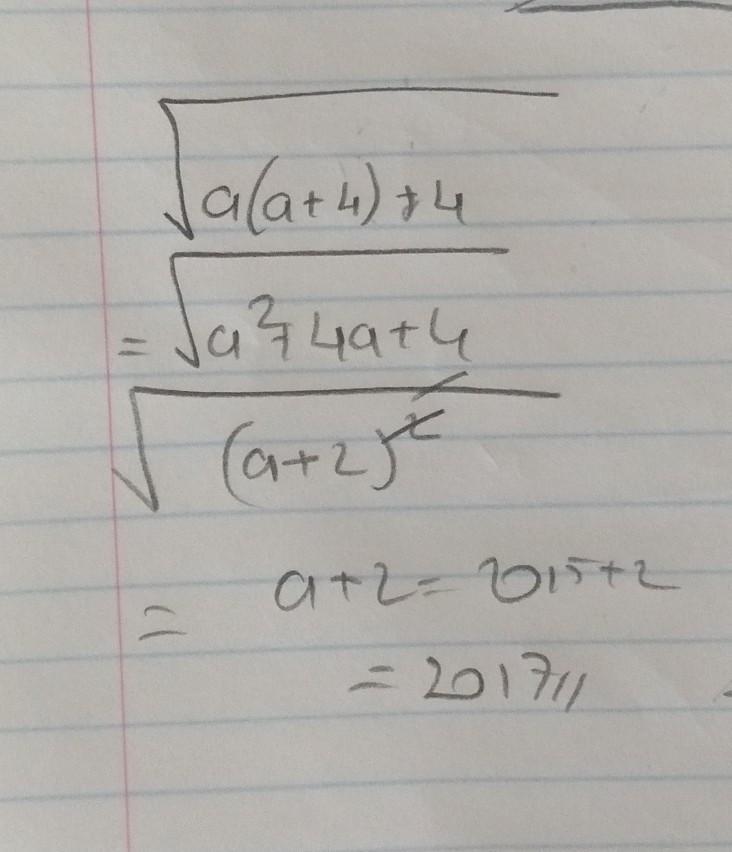 √a(a+4)+4
= √a²+4a+4
√(a+2)²
= a+2 = 2015+2
= 2017//